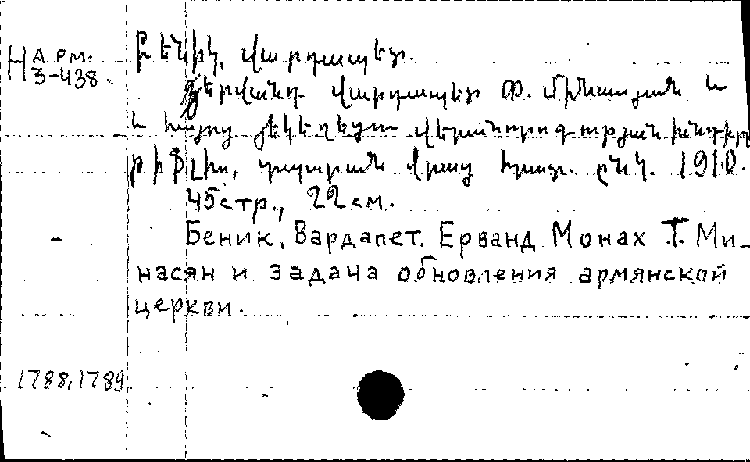 Н АРМ.
3-438.
Բենիկ, վարդապետ.
Երվանդ վարդապետ Թ. Մինասյան և
և հայոց եկեղեցու վերանորոգության խնդիրը
Թիֆլիս, տպարան վրաց հրատ. ընկ. 1910.
45 стр., 22 см.
Беник, Вардапет. Ерванд Монах Т. Ми-
насян и задача обновления армянской
церкви.
1788,1789